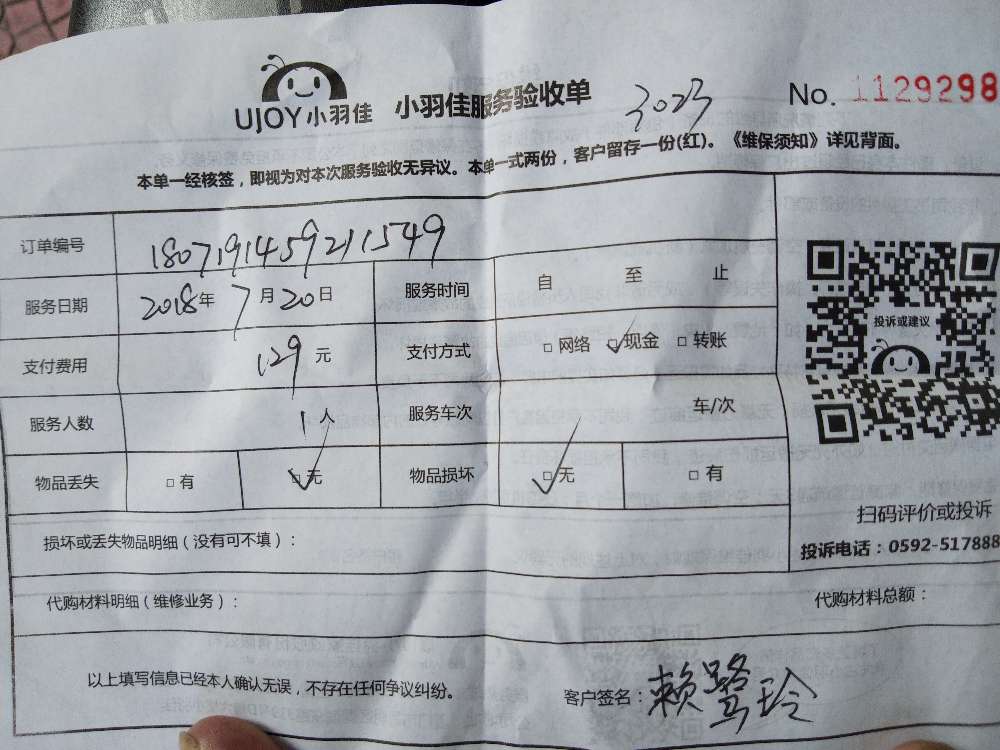 UJOY小羽佳 小羽佳服务验收单 3023 No. 1129298
本单一经核签，即视为对本次服务验收无异议。本单一式两份，客户留存一份(红)。《维保须知》详见背面。
订单编号 1807191459211549
服务日期 2018年 7月20日 服务时间 自 至 止
支付费用 129元 支付方式 □网络 □✓现金 □转账
服务人数 1人 服务车次 车/次
物品丢失 □有 □✓无 物品损坏 □✓无 □有
损坏或丢失物品明细（没有可不填）：
代购材料明细（维修业务）： 代购材料总额：
以上填写信息已经本人确认无误，不存在任何争议纠纷。 客户签名：赖鹭玲
投诉或建议
扫码评价或投诉
投诉电话：0592-517888